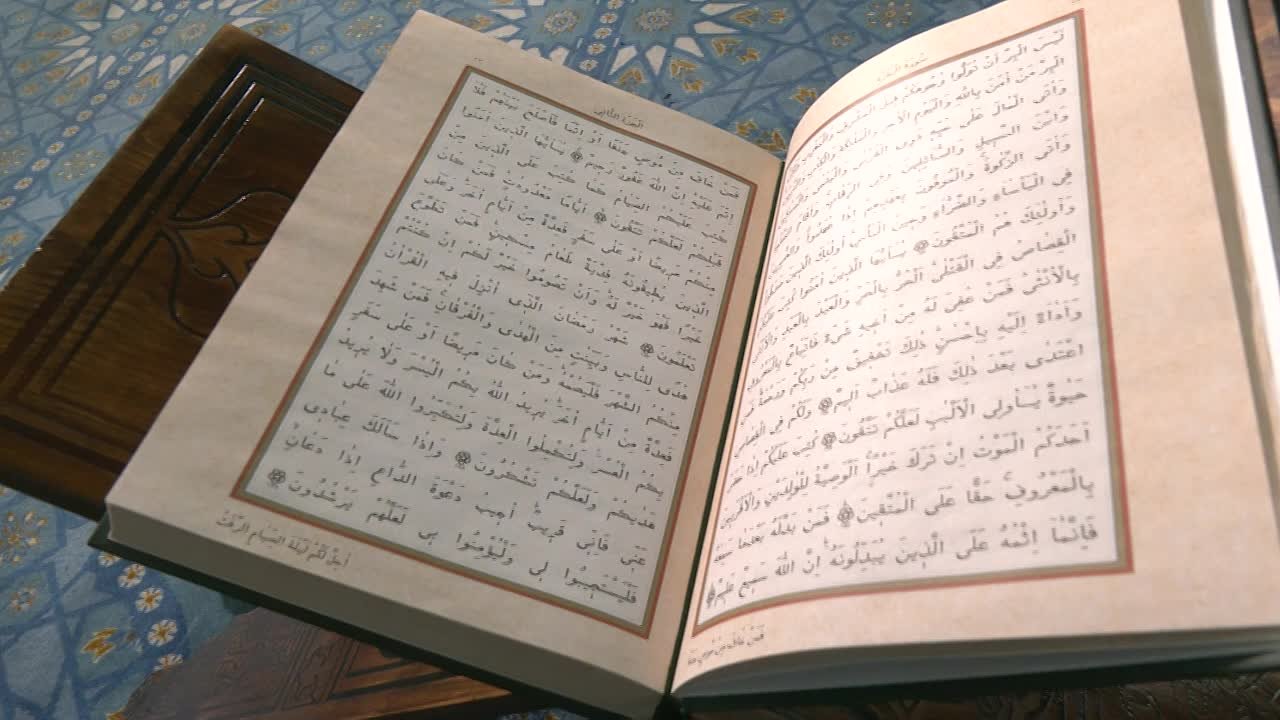 سُورَةُ البَقَرَة
لَيْسَ الْبِرَّ اَنْ تُوَلُّوا وُجُوهَكُمْ قِبَلَ الْمَشْرِقِ وَالْمَغْرِبِ
الْبِرَّ مَنْ اٰمَنَ بِاللّٰهِ وَالْيَوْمِ الْاٰخِرِ وَالْمَلٰٓئِكَةِ وَالْكِتَابِ
وَاٰتَى الْمَالَ عَلٰى حُبِّهٖ ذَوِى الْقُرْبٰى وَالْيَتَامٰى
وَابْنَ السَّبٖيلِ وَالسَّٓائِلٖينَ وَفِى الرِّقَابِ وَاَقَامَ
وَاٰتَى الزَّكٰوةَ وَالْمُوفُونَ بِعَهْدِهِمْ اِذَا عَاهَدُوا
فِى الْبَأْسَٓاءِ وَالضَّرَّٓاءِ وَحٖينَ الْبَأْسِ اُولٰٓئِكَ الَّذٖينَ صَدَقُوا
وَاُولٰٓئِكَ هُمُ الْمُتَّقُونَ يَٓا اَيُّهَا الَّذٖينَ اٰمَنُوا كُتِبَ عَلَيْكُمُ
الْقِصَاصُ فِى الْقَتْلٰى اَلْحُرُّ بِالْحُرِّ وَالْعَبْدُ بِالْعَبْدِ وَالْاُنْثٰى
بِالْاُنْثٰى فَمَنْ عُفِىَ لَهُ مِنْ اَخٖيهِ شَىْءٌ فَاتِّبَاعٌ بِالْمَعْرُوفِ
وَاَدَٓاءٌ اِلَيْهِ بِاِحْسَانٍ ذٰلِكَ تَخْفٖيفٌ مِنْ رَبِّكُمْ وَرَحْمَةٌ فَمَنِ
اعْتَدٰى بَعْدَ ذٰلِكَ فَلَهُ عَذَابٌ اَلٖيمٌ وَلَكُمْ فِى الْقِصَاصِ
حَيٰوةٌ يَٓا اُولِى الْاَلْبَابِ لَعَلَّكُمْ تَتَّقُونَ كُتِبَ عَلَيْكُمْ اِذَا حَضَرَ
اَحَدَكُمُ الْمَوْتُ اِنْ تَرَكَ خَيْرًا اَلْوَصِيَّةُ لِلْوَالِدَيْنِ وَالْاَقْرَبٖينَ
بِالْمَعْرُوفِ حَقًّا عَلَى الْمُتَّقٖينَ فَمَنْ بَدَّلَهُ بَعْدَمَا سَمِعَهُ
فَاِنَّمَٓا اِثْمُهُ عَلَى الَّذٖينَ يُبَدِّلُونَهُ اِنَّ اللّٰهَ سَمٖيعٌ عَلٖيمٌ
فَمَنْ خَافَ مِنْ مُوصٍ
الجُزءُ الثَّانِي
فَمَنْ خَافَ مِنْ مُوصٍ جَنَفًا اَوْ اِثْمًا فَاَصْلَحَ بَيْنَهُمْ فَلَٓا
اِثْمَ عَلَيْهِ اِنَّ اللّٰهَ غَفُورٌ رَحٖيمٌ يَٓا اَيُّهَا الَّذٖينَ اٰمَنُوا
كُتِبَ عَلَيْكُمُ الصِّيَامُ كَمَا كُتِبَ عَلَى الَّذٖينَ مِنْ
قَبْلِكُمْ لَعَلَّكُمْ تَتَّقُونَ اَيَّامًا مَعْدُودَاتٍ فَمَنْ كَانَ
مِنْكُمْ مَرٖيضًا اَوْ عَلٰى سَفَرٍ فَعِدَّةٌ مِنْ اَيَّامٍ اُخَرَ وَعَلَى
الَّذٖينَ يُطٖيقُونَهُ فِدْيَةٌ طَعَامُ مِسْكٖينٍ فَمَنْ تَطَوَّعَ
خَيْرًا فَهُوَ خَيْرٌ لَهُ وَاَنْ تَصُومُوا خَيْرٌ لَكُمْ اِنْ كُنْتُمْ
تَعْلَمُونَ شَهْرُ رَمَضَانَ الَّذٖٓى اُنْزِلَ فٖيهِ الْقُرْاٰنُ
هُدًى لِلنَّاسِ وَبَيِّنَاتٍ مِنَ الْهُدٰى وَالْفُرْقَانِ فَمَنْ شَهِدَ
مِنْكُمُ الشَّهْرَ فَلْيَصُمْهُ وَمَنْ كَانَ مَرٖيضًا اَوْ عَلٰى سَفَرٍ
فَعِدَّةٌ مِنْ اَيَّامٍ اُخَرَ يُرٖيدُ اللّٰهُ بِكُمُ الْيُسْرَ وَلَا يُرٖيدُ
بِكُمُ الْعُسْرَ وَلِتُكْمِلُوا الْعِدَّةَ وَلِتُكَبِّرُوا اللّٰهَ عَلٰى مَا
هَدٰيكُمْ وَلَعَلَّكُمْ تَشْكُرُونَ وَاِذَا سَاَلَكَ عِبَادٖى
عَنّٖى فَاِنّٖى قَرٖيبٌ اُجٖيبُ دَعْوَةَ الدَّاعِ اِذَا دَعَانِ
فَلْيَسْتَجٖيبُوا لٖى وَلْيُؤْمِنُوا بٖى لَعَلَّهُمْ يَرْشُدُونَ
اُحِلَّ لَكُمْ لَيْلَةَ الصِّيَامِ الرَّفَثُ